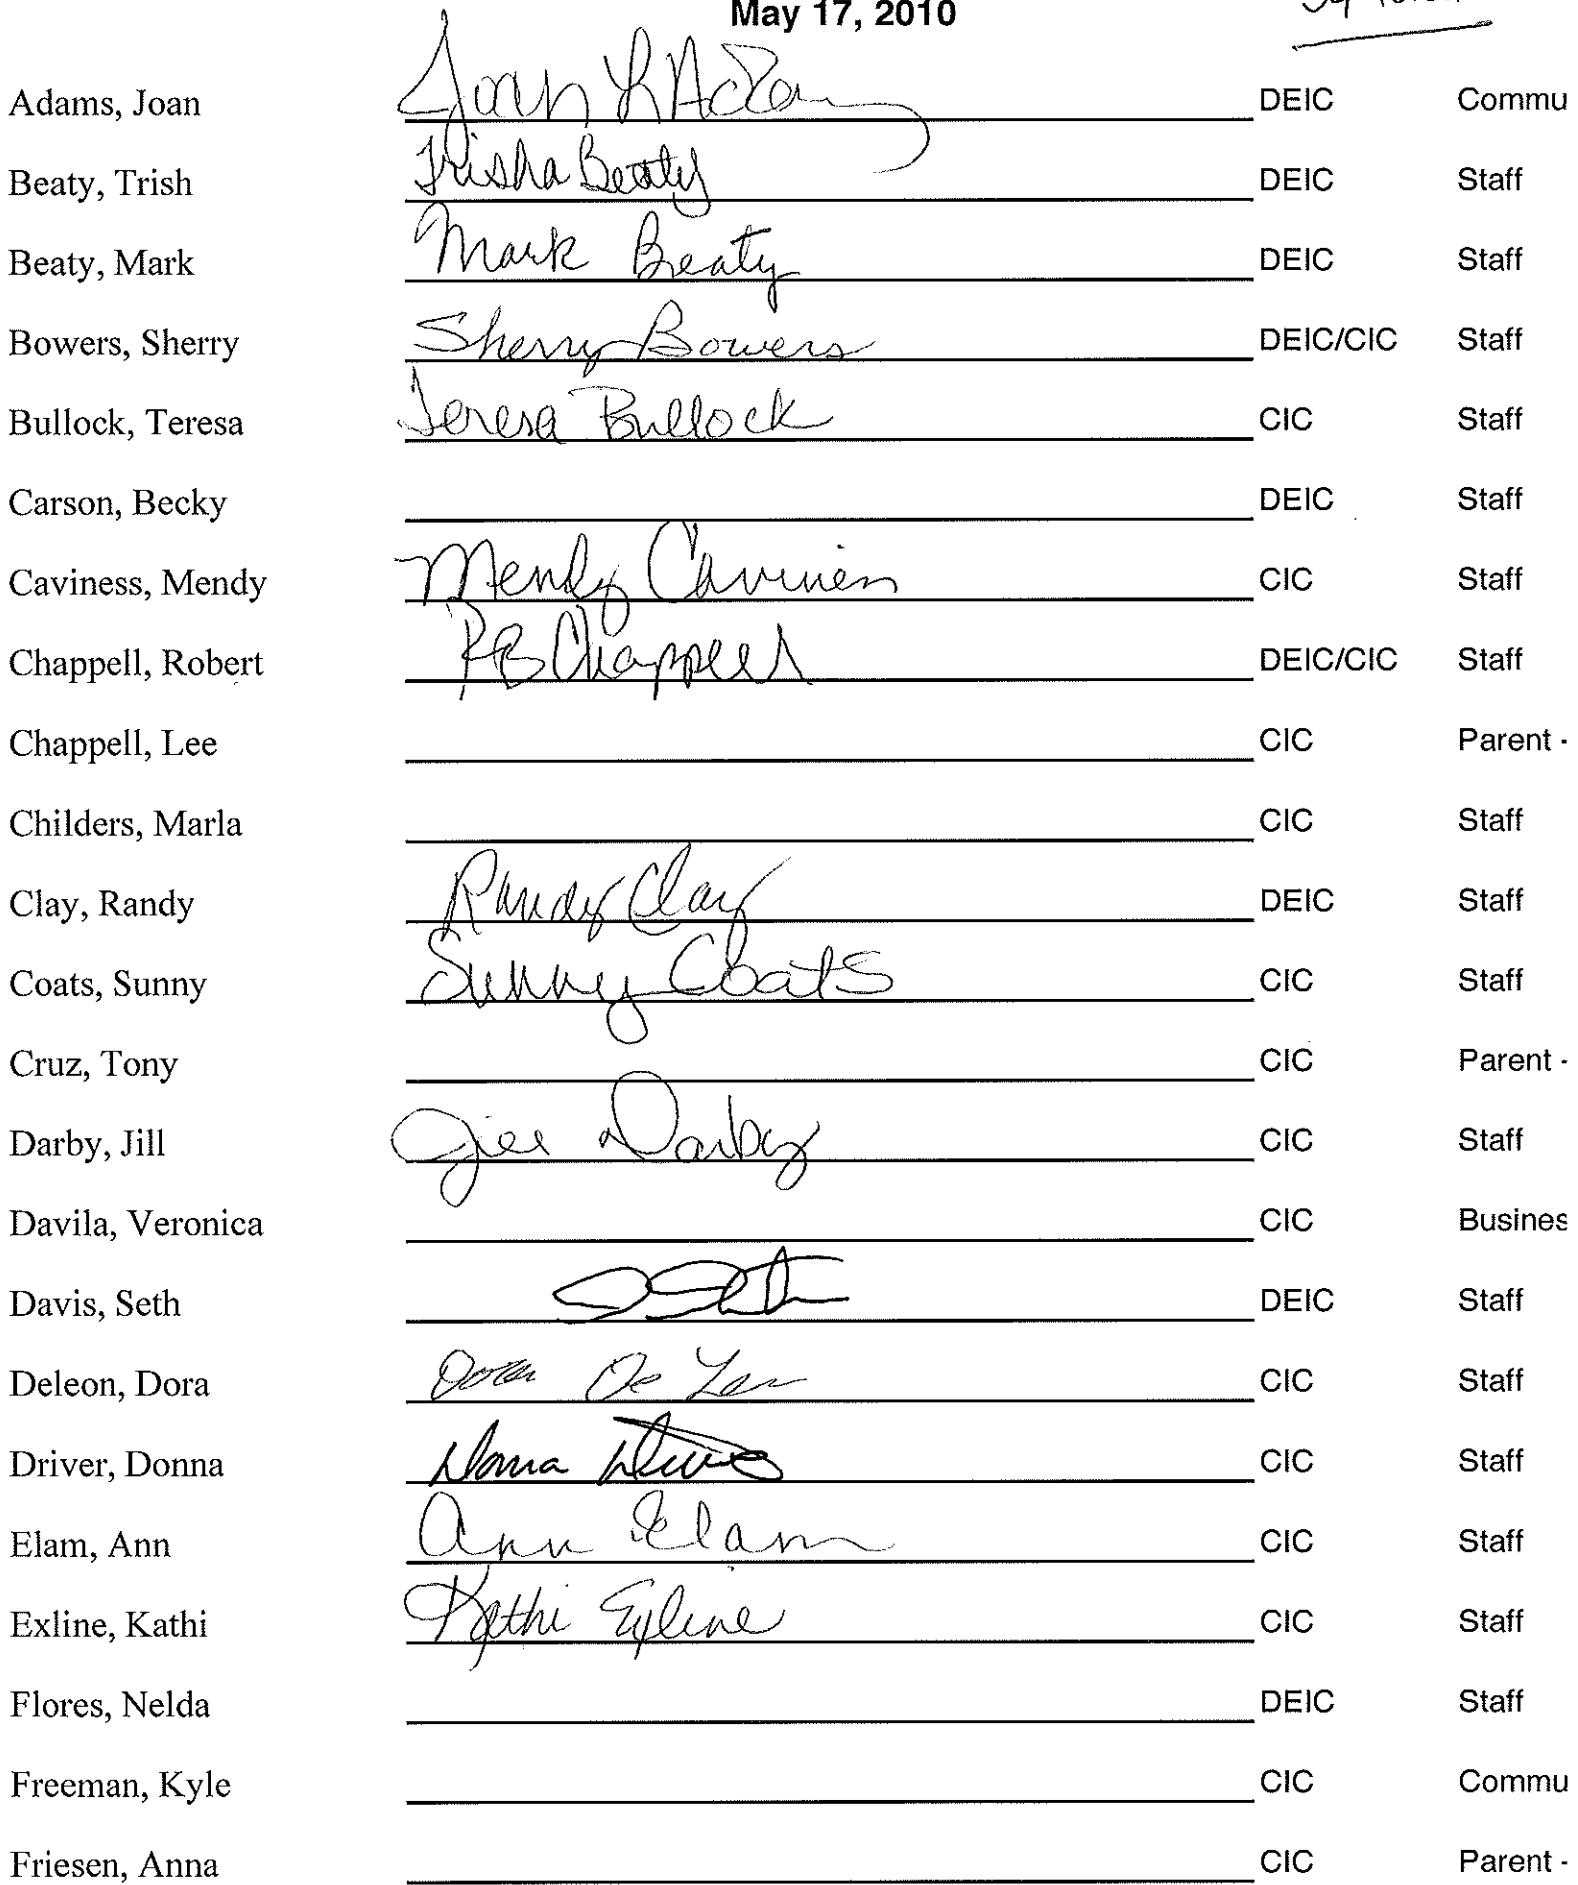 May 17, 2010
Adams, Joan Joan L Adams DEIC Commu
Beaty, Trish Trisha Beaty DEIC Staff
Beaty, Mark Mark Beaty DEIC Staff
Bowers, Sherry Sherry Bowers DEIC/CIC Staff
Bullock, Teresa Teresa Bullock CIC Staff
Carson, Becky DEIC Staff
Caviness, Mendy Mendy Caviness CIC Staff
Chappell, Robert RB Chappell DEIC/CIC Staff
Chappell, Lee CIC Parent -
Childers, Marla CIC Staff
Clay, Randy Randy Clay DEIC Staff
Coats, Sunny Sunny Coats CIC Staff
Cruz, Tony CIC Parent -
Darby, Jill Jill Darby CIC Staff
Davila, Veronica CIC Busines
Davis, Seth DEIC Staff
Deleon, Dora Dora De Leon CIC Staff
Driver, Donna Donna Driver CIC Staff
Elam, Ann Ann Elam CIC Staff
Exline, Kathi Kathi Exline CIC Staff
Flores, Nelda DEIC Staff
Freeman, Kyle CIC Commu
Friesen, Anna CIC Parent -